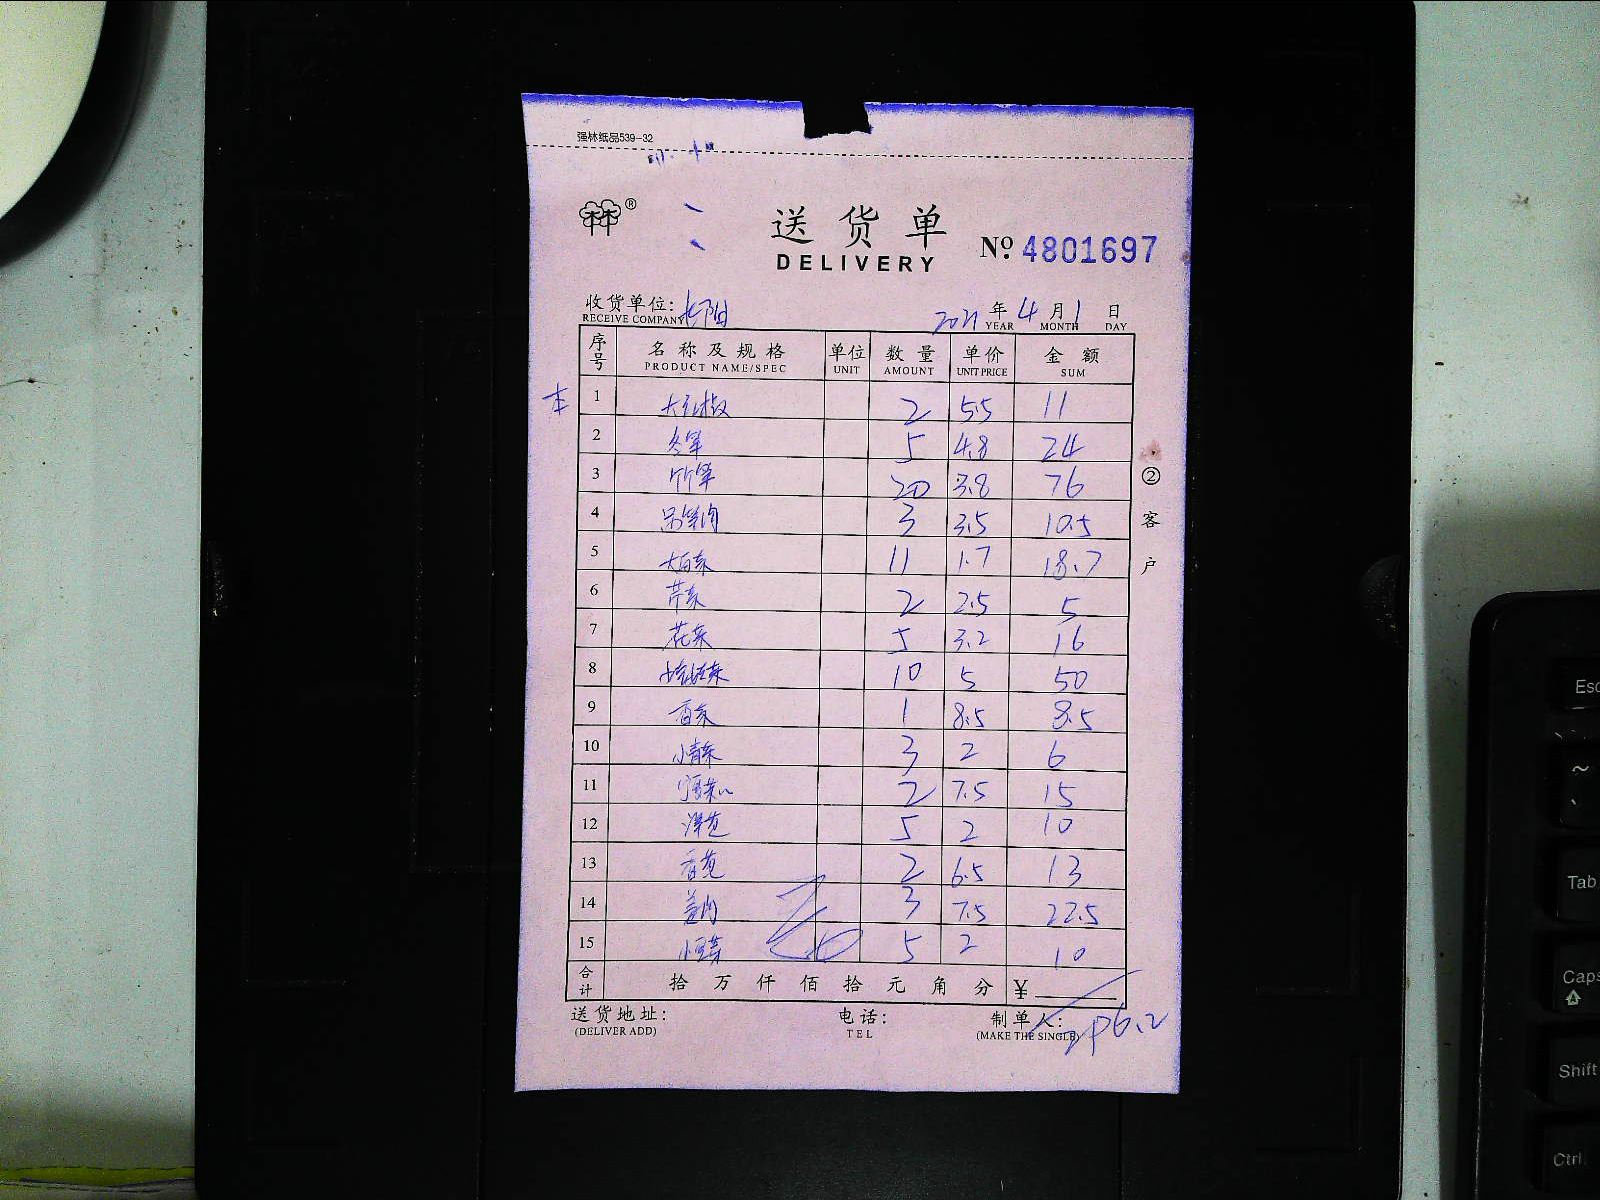 强林纸品539-32
林®
送货单
DELIVERY
№ 4801697
收货单位: 长阳 2021 年 4 月 1 日
RECEIVE COMPANY YEAR MONTH DAY
序号 名称及规格 单位 数量 单价 金额
PRODUCT NAME/SPEC UNIT AMOUNT UNIT PRICE SUM
1 大红椒 2 5.5 11
2 冬笋 5 4.8 24
3 竹笋 20 3.8 76
4 3 3.5 10.5
5 大白菜 11 1.7 18.7
6 芹菜 2 2.5 5
7 花菜 5 3.2 16
8 10 5 50
9 百菜 1 8.5 8.5
10 小青菜 3 2 6
11 2 7.5 15
12 5 2 10
13 香葱 2 6.5 13
14 姜肉 3 7.5 22.5
15 5 2 10
合计 拾 万 仟 佰 拾 元 角 分 ¥
296.2
送货地址: 电话: 制单人:
(DELIVER ADD) TEL (MAKE THE SINGLE)
② 客户
Esc
~
Tab
Caps
Shift
Ctrl